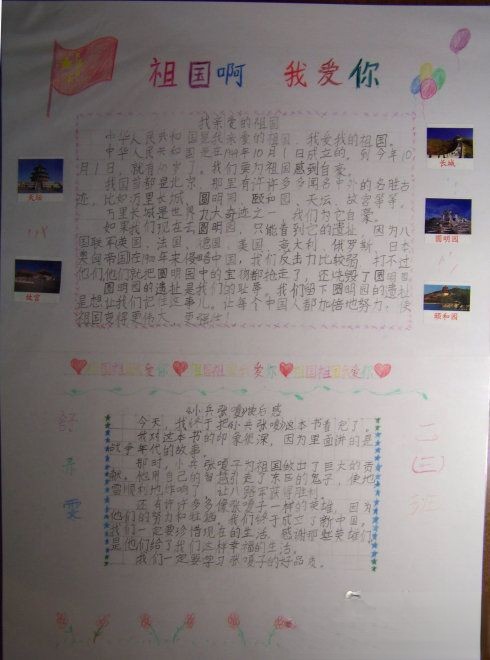 祖国啊 我爱你
我亲爱的祖国
中华人民共和国是我亲爱的祖国，我爱我的祖国。
中华人民共和国是在1949年10月1日成立的，到今年10
月1日，就有 岁了。我们要为祖国感到自豪。
我国首都是北京，那里有许许多多闻名中 的名胜古
迹，比如万里长城、圆明园、颐和园、天坛、故宫等等。
万里长城是世界九大奇迹之一，我们为它自豪。
如果我们现在去圆明园，只能看到它的遗址，因为八
国联军英国、法国、德国、美国、意大利、俄罗斯、日本、
奥匈帝国在 年来侵略中国，我们反击力比较弱，打不过
他们，他们就把圆明园中的宝物都抢走了，还烧毁了圆明园。
圆明园的遗址是我们的耻辱。我们留下圆明园的遗址
是想让我们记住这事儿。让每个中国人都加倍地努力，使
祖国变得更伟大、更强壮！
天坛
故宫
长城
圆明园
颐和园
祖国祖国我爱你
祖国祖国我爱你
祖国祖国我爱你
《小兵张嘎》读后感
今天，我终于把《小兵张嘎》这本书看完了。
我对这本书的印象很深，因为里面讲的是
战争年代的故事。
那时，小兵张嘎子为祖国做出了巨大的贡
献。他用自己的智慧引走了东边的鬼子，使地
雷顺利地炸响了，让八路军获得胜利。
还有许许多多像张嘎子一样的英雄，因为
他们的努力和牺牲，我们终于成立了新中国。
我们一定要珍惜现在的生活，感谢那些英雄们，
是他们给了我们这样幸福的生活。
我们一定要学习张嘎子的好品质。
雯
二(三)班